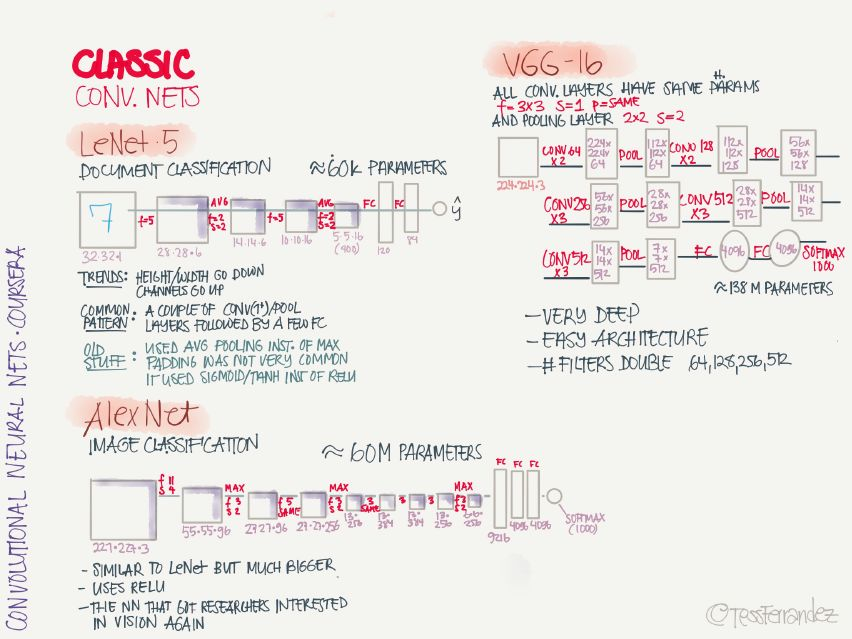 CLASSIC
CONV. NETS
LeNet-5
DOCUMENT CLASSIFICATION
≈ 60K PARAMETERS
7
f=5
AVG
f=2
S=2
f=5
AVG
f=2
S=2
FC
FC
ŷ
32·32·1
28·28·6
14·14·6
10·10·16
5·5·16
(400)
120
84
TRENDS: HEIGHT/WIDTH GO DOWN
CHANNELS GO UP
COMMON PATTERN: A COUPLE OF CONV(1+)/POOL
LAYERS FOLLOWED BY A FEW FC
OLD STUFF: USED AVG POOLING INST. OF MAX
PADDING WAS NOT VERY COMMON
IT USED SIGMOID/TANH INST OF RELU
AlexNet
IMAGE CLASSIFICATION
≈ 60M PARAMETERS
f 11
S 4
MAX
f 3
S 2
f 5
SAME
MAX
f 3
S 2
3
SAME
3
3
MAX
f 3
S 2
FC
FC
FC
227·227·3
55·55·96
27·27·96
27·27·256
13·
256
13·
384
13·
384
13·
256
6·6·
256
9216
4096
4096
SOFTMAX
(1000)
- SIMILAR TO LeNet BUT MUCH BIGGER
- USES RELU
- THE NN THAT GOT RESEARCHERS INTERESTED
IN VISION AGAIN
VGG-16
H.
ALL CONV. LAYERS HAVE SAME PARAMS
f=3X3 S=1 P=SAME
AND POOLING LAYER 2X2 S=2
224·224·3
CONV 64
X2
224x
224x
64
POOL
112x
112x
64
CONV 128
X2
112x
112x
128
POOL
56x
56x
128
CONV 256
X3
56x
56x
256
POOL
28x
28x
256
CONV 512
X3
28x
28x
512
POOL
14x
14x
512
CONV 512
X3
14x
14x
512
POOL
7x
7x
512
FC
4096
FC
4096
SOFTMAX
1000
≈ 138 M PARAMETERS
- VERY DEEP
- EASY ARCHITECTURE
- # FILTERS DOUBLE 64, 128, 256, 512
CONVOLUTIONAL NEURAL NETS · COURSERA
©TessFerrandez